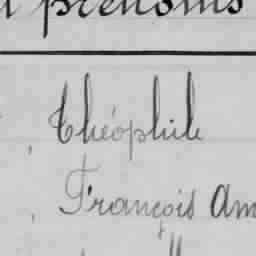 prénoms
Théophile
François Am